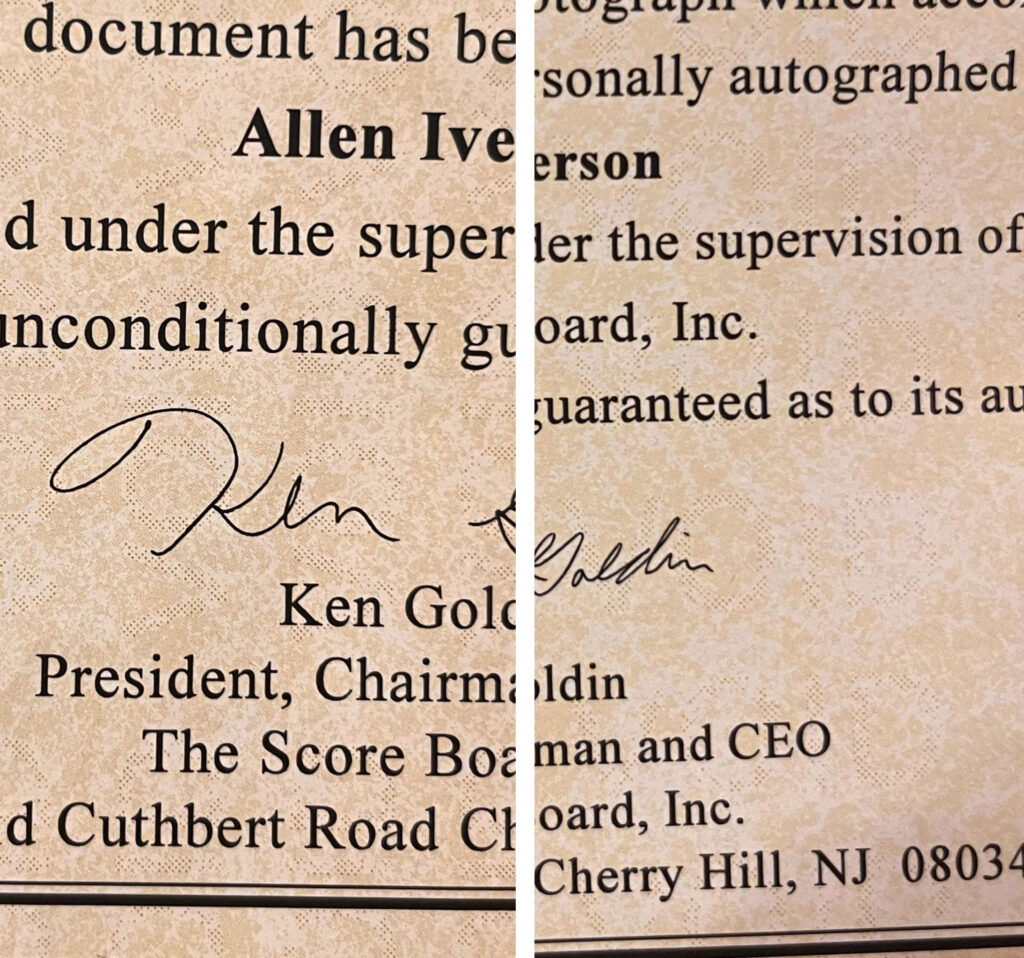 document has be
Allen Ive
d under the super
unconditionally gu
Ken
Ken Gold
President, Chairma
The Score Boa
d Cuthbert Road Ch
otograph which acco
rsonally autographed
erson
der the supervision of
oard, Inc.
guaranteed as to its au
Goldin
oldin
man and CEO
oard, Inc.
Cherry Hill, NJ 08034